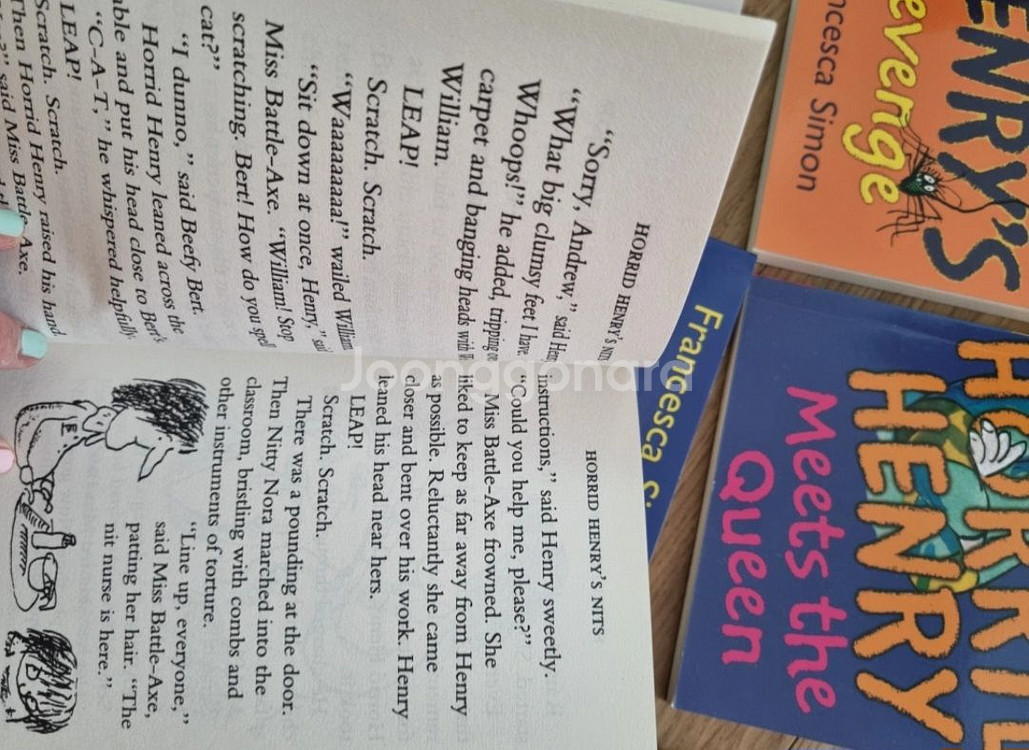 HORRID HENRY'S
"Sorry, Andrew," said
"What big clumsy feet I have.
Whoops!" he added, tripping
carpet and banging heads with
William.
LEAP!
Scratch. Scratch.
"Waaaaaaaa!" wailed William
"Sit down at once, Henry,"
Miss Battle-Axe. "William! Stop
scratching. Bert! How do you spell
cat?"
"I dunno," said Beefy Bert.
Horrid Henry leaned across the
able and put his head close to Bert's
"C–A–T," he whispered helpfully.
LEAP!
Scratch. Scratch.
Then Horrid Henry raised his hand
said Miss Battle-Axe.
HORRID HENRY'S NITS
instructions," said Henry sweetly.
"Could you help me, please?"
Miss Battle-Axe frowned. She
liked to keep as far away from Henry
as possible. Reluctantly she came
closer and bent over his work. Henry
leaned his head near hers.
LEAP!
Scratch. Scratch.
There was a pounding at the door.
Then Nitty Nora marched into the
classroom, bristling with combs and
other instruments of torture.
"Line up, everyone,"
said Miss Battle-Axe,
patting her hair. "The
nit nurse is here."
ENRY'S
evenge
ncesca Simon
Francesca
HORRID
HENRY
Meets the
Queen
Joonggonara